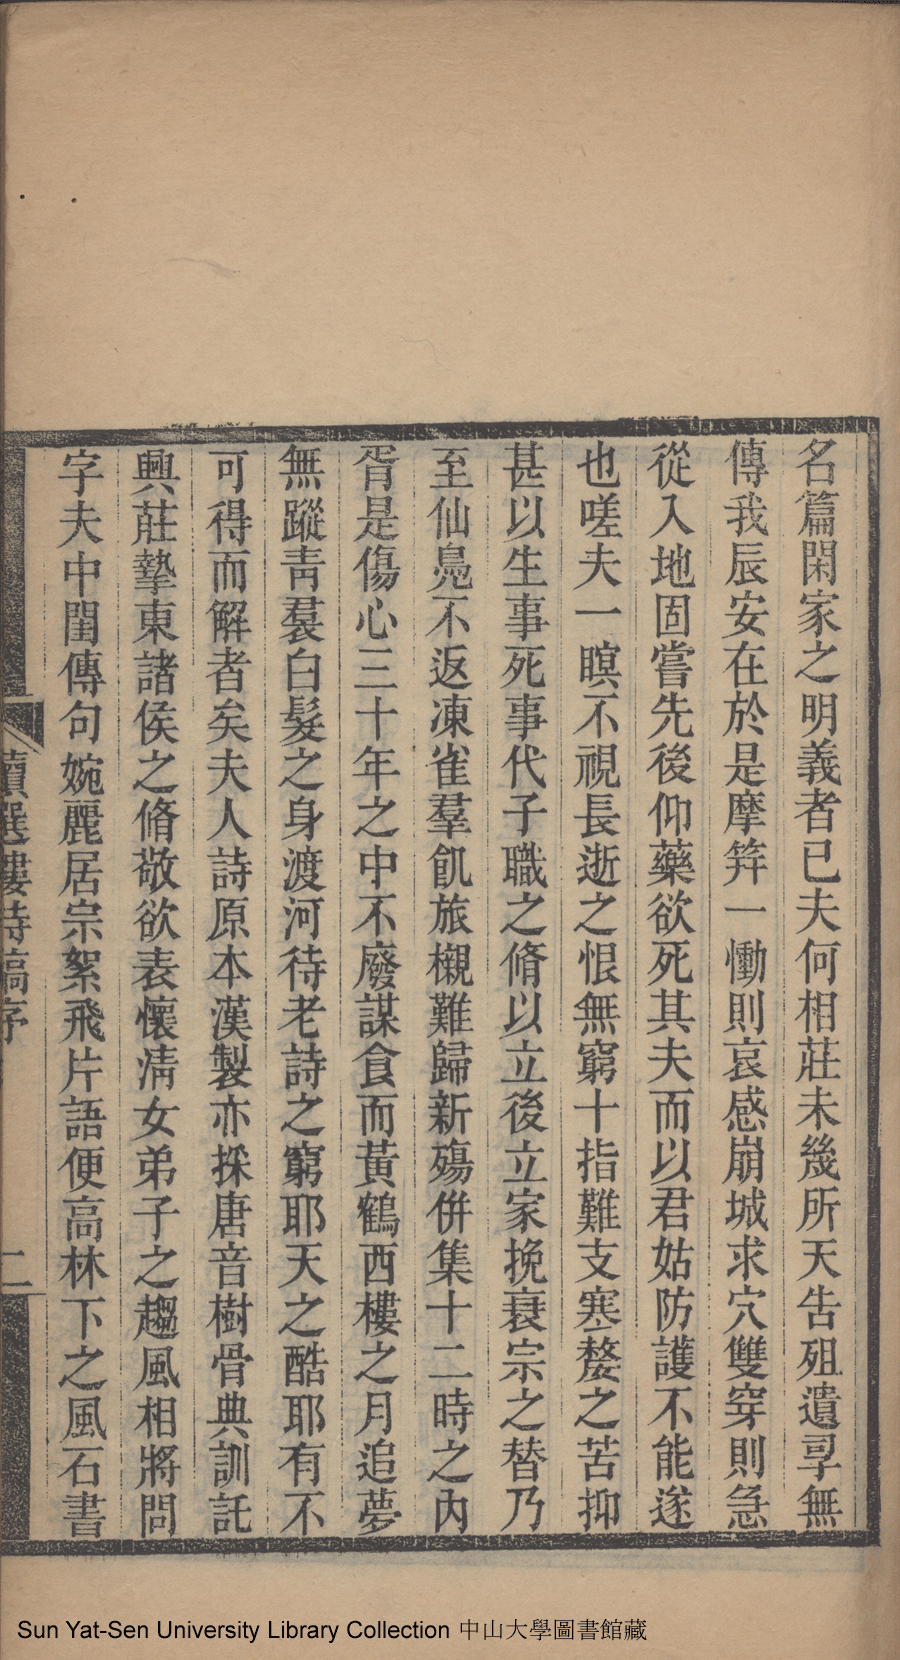 名篇閑家之明義者已夫何相莊未幾所天告殂遺孠無
傳我辰安在於是摩笄一慟則哀感崩城求穴雙穿則急
從入地固嘗先後仰藥欲死其夫而以君姑防護不能遂
也嗟夫一瞑不視長逝之恨無窮十指難支寒嫠之苦抑
甚以生事死事代子職之脩以立後立家挽衰宗之替乃
至仙鳧不返凍雀羣飢旅櫬難歸新殤併集十二時之內
胥是傷心三十年之中不廢謀食而黃鶴西樓之月追夢
無蹤靑裠白髮之身渡河待老詩之窮耶天之酷耶有不
可得而解者矣夫人詩原本漢製亦採唐音樹骨典訓託
興莊摯東諸侯之脩敬欲表懷淸女弟子之趨風相將問
字夫中閨傳句婉麗居宗絮飛片語便高林下之風石書
讀選樓詩稿序
二
Sun Yat-Sen University Library Collection 中山大學圖書館藏